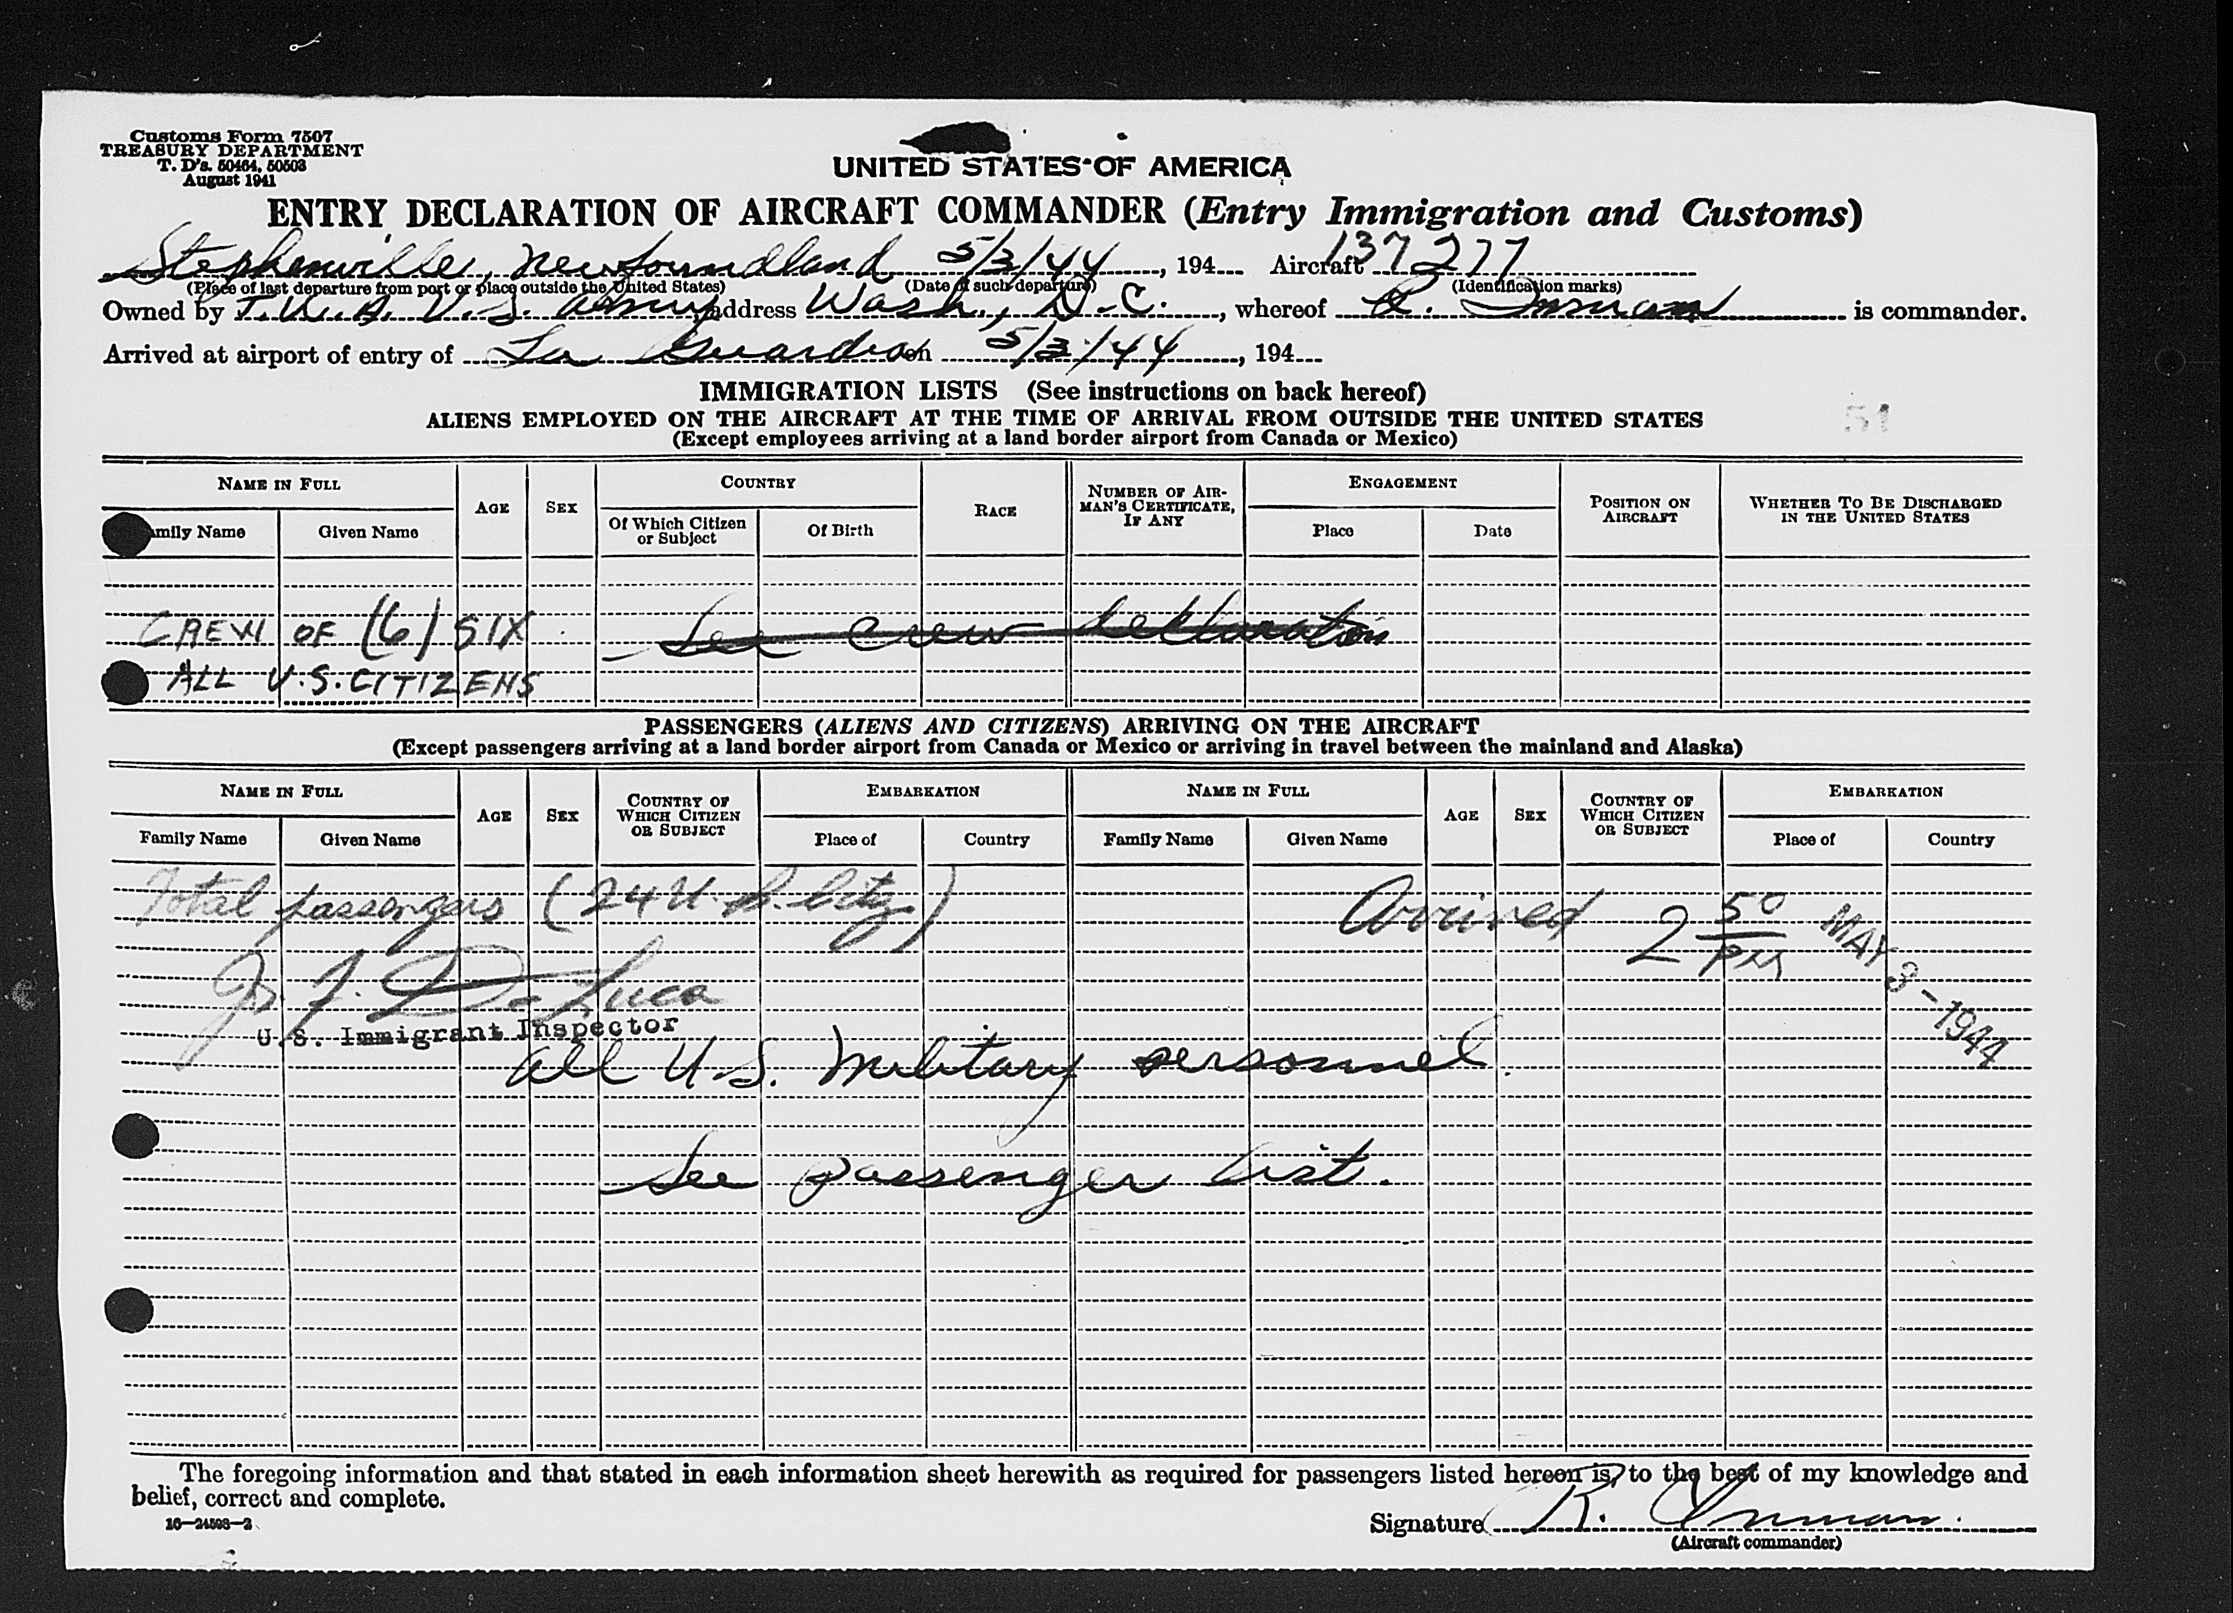 Customs Form 7507
TREASURY DEPARTMENT
T. D's. 50464, 50503
August 1941
UNITED STATES OF AMERICA
ENTRY DECLARATION OF AIRCRAFT COMMANDER (Entry Immigration and Customs)
Stephenville, Newfoundland 5/3/44, 194 Aircraft 137277
(Place of last departure from port or place outside the United States) (Date of such departure) (Identification marks)
Owned by T.W.A. U.S. Army address Wash., D.C., whereof R. Inman is commander.
Arrived at airport of entry of La Guardia on 5/3/44, 194
IMMIGRATION LISTS (See instructions on back hereof)
ALIENS EMPLOYED ON THE AIRCRAFT AT THE TIME OF ARRIVAL FROM OUTSIDE THE UNITED STATES
51
(Except employees arriving at a land border airport from Canada or Mexico)
NAME IN FULL AGE SEX COUNTRY RACE NUMBER OF AIRMAN'S CERTIFICATE, IF ANY ENGAGEMENT POSITION ON AIRCRAFT WHETHER TO BE DISCHARGED IN THE UNITED STATES
Family Name Given Name Of Which Citizen or Subject Of Birth Place Date
CREW OF (6) SIX See crew declaration
ALL U.S. CITIZENS
PASSENGERS (ALIENS AND CITIZENS) ARRIVING ON THE AIRCRAFT
(Except passengers arriving at a land border airport from Canada or Mexico or arriving in travel between the mainland and Alaska)
NAME IN FULL AGE SEX COUNTRY OF WHICH CITIZEN OR SUBJECT EMBARKATION NAME IN FULL AGE SEX COUNTRY OF WHICH CITIZEN OR SUBJECT EMBARKATION
Family Name Given Name Place of Country Family Name Given Name Place of Country
Total passengers (24 U.S. Citz) Arrived 2 50 PM MAY 3-1944
J. De Luca
U.S. Immigrant Inspector
All U.S. Military personnel.
See passenger list.
The foregoing information and that stated in each information sheet herewith as required for passengers listed hereon is, to the best of my knowledge and
belief, correct and complete.
16—24598-2
Signature R. Inman
(Aircraft commander)